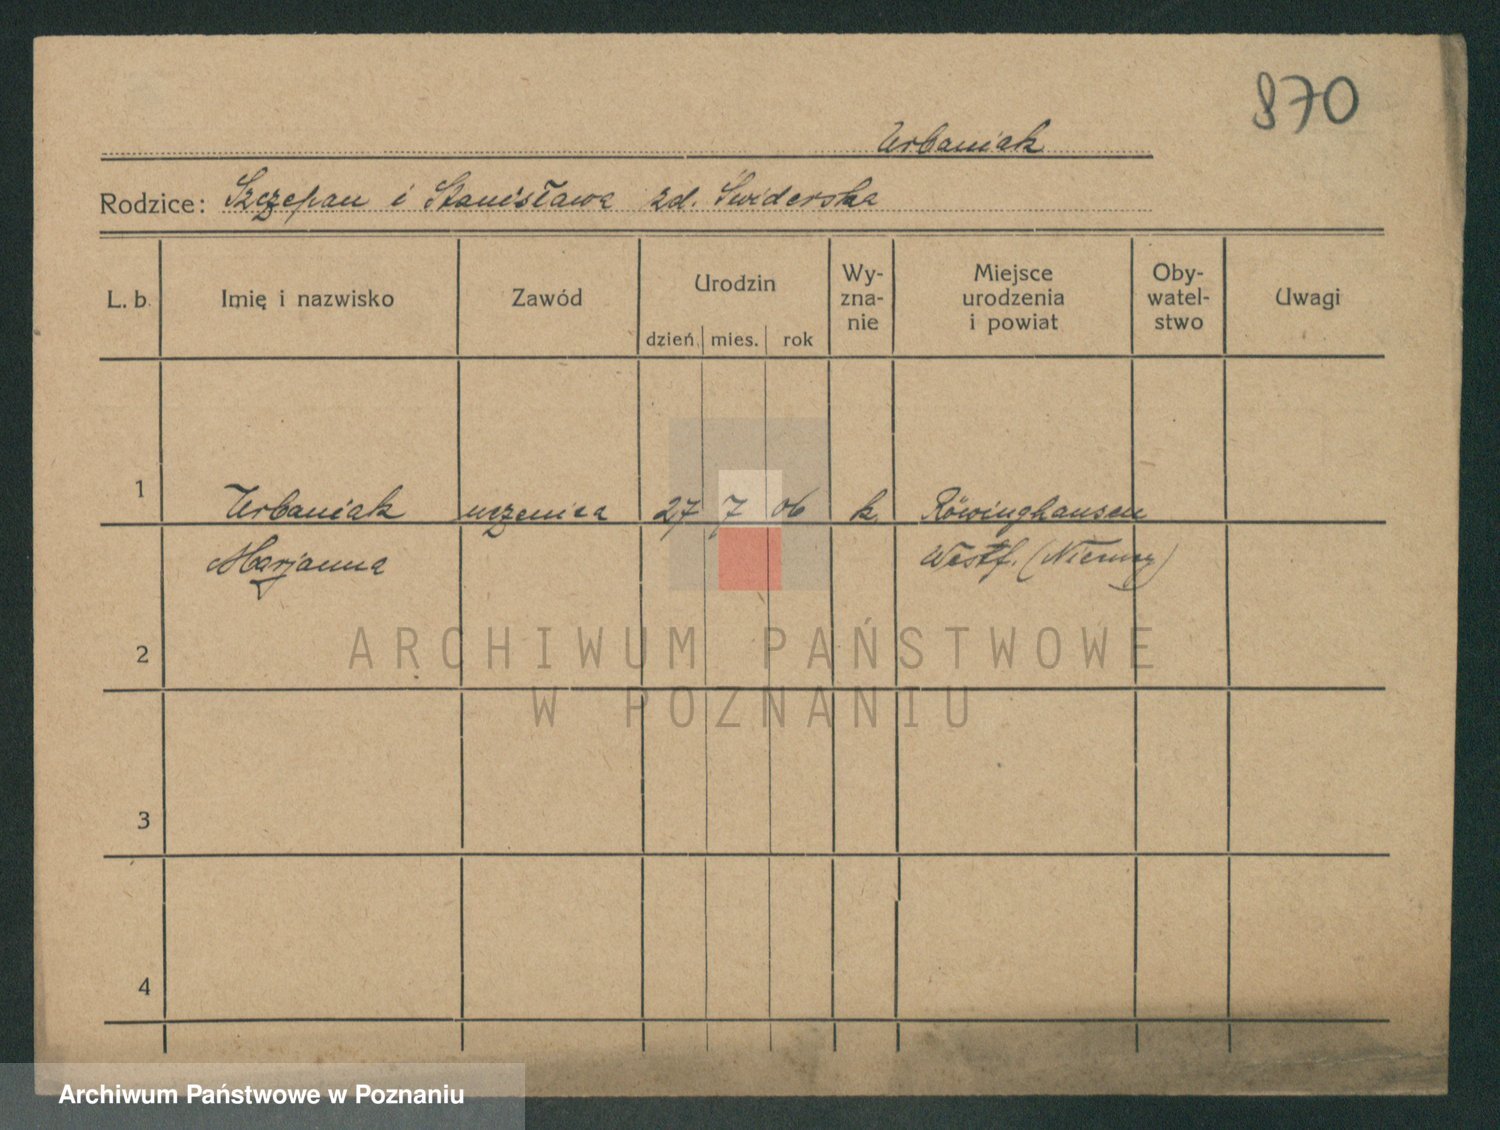 870
Urbaniak
Rodzice: Szczepan i Stanisława zd. Świderska
L. b. Imię i nazwisko Zawód Urodzin dzień mies. rok Wy-zna-nie Miejsce urodzenia i powiat Oby-watel-stwo Uwagi
1 Urbaniak uczenica 27 7 06 k. Röwinghausen
Marjanna Westf. (Niemcy)
2
ARCHIWUM PAŃSTWOWE
W POZNANIU
3
4
Archiwum Państwowe w Poznaniu